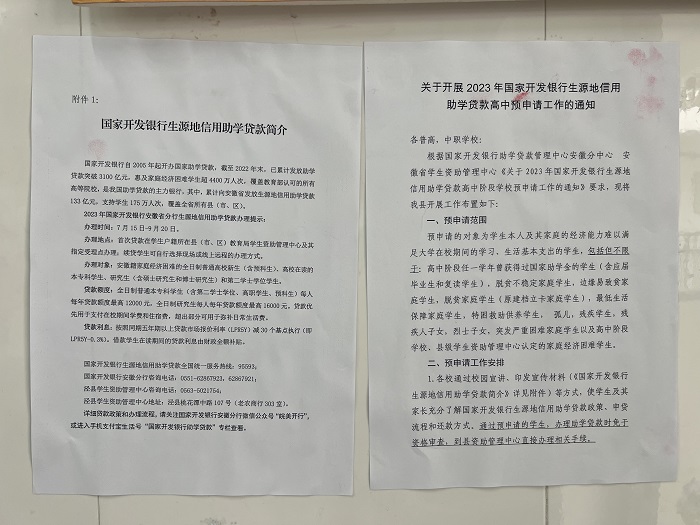 附件1:
国家开发银行生源地信用助学贷款简介
国家开发银行自2005年起开办国家助学贷款，截至2022年末，已累计发放助学
贷款突破3100亿元，惠及家庭经济困难学生超4400万人次，覆盖教育部认可的所有
高等院校，是我国助学贷款的主力银行。其中，累计向安徽省发放生源地信用助学贷款
133亿元，支持学生175万人次，覆盖全省所有县（市、区）。
2023年国家开发银行安徽省分行生源地信用助学贷款办理提示：
办理时间：7月15日-9月20日。
办理地点：首次贷款在学生户籍所在县（市、区）教育局学生资助管理中心及其
指定受理点办理；续贷学生可自行选择现场或线上远程的办理方式。
办理对象：安徽籍家庭经济困难的全日制普通高校新生（含预科生）、高校在读的
本专科学生、研究生（含硕士研究生和博士研究生）和第二学士学位学生。
贷款额度：全日制普通本专科学生（含第二学士学位、高职学生、预科生）每人
每年贷款额度最高12000元，全日制研究生每人每年贷款额度最高16000元。贷款优
先用于支付在校期间学费和住宿费，超出部分可用于弥补日常生活费。
贷款利息：按照同期五年期以上贷款市场报价利率（LPR5Y）减30个基点执行（即
LPR5Y-0.3%）。借款学生在读期间的贷款利息由财政全额补贴。
国家开发银行生源地信用助学贷款全国统一服务热线：95593；
国家开发银行安徽分行咨询电话：0551-62867923、62867921；
泾县学生资助管理中心咨询电话：0563-5021754；
泾县学生资助管理中心地址：泾县桃花潭中路107号（老农商行303室）。
详细贷款政策和办理流程，请关注国家开发银行安徽分行微信公众号“皖美开行”，
或进入手机支付宝生活号“国家开发银行助学贷款”专栏查看。
关于开展2023年国家开发银行生源地信用
助学贷款高中预申请工作的通知
各普高、中职学校：
根据国家开发银行助学贷款管理中心安徽分中心 安
徽省学生资助管理中心《关于2023年国家开发银行生源地信
用助学贷款高中阶段学校预申请工作的通知》要求，现将
我县开展工作布置如下：
一、预申请范围
预申请的对象为学生本人及其家庭的经济能力难以满
足大学在校期间的学习、生活基本支出的学生，包括但不限
于：高中阶段任一学年曾获得过国家助学金的学生（含应届
毕业生和复读学生），脱贫不稳定家庭学生，边缘易致贫家
庭学生，脱贫家庭学生（原建档立卡家庭学生），最低生活
保障家庭学生，特困救助供养学生， 孤儿，残疾学生，残
疾人子女，烈士子女，突发严重困难家庭学生以及高中阶段
学校、县级学生资助管理中心认定的家庭经济困难学生。
二、预申请工作安排
1.各校通过校园宣讲、印发宣传材料（《国家开发银行
生源地信用助学贷款简介》详见附件）等方式，使学生及其
家长充分了解国家开发银行生源地信用助学贷款政策、申贷
流程和还款方式。通过预申请的学生，办理助学贷款时免于
资格审查，到县资助管理中心直接办理相关手续。